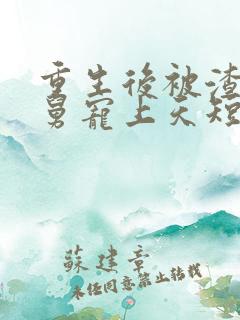 重生後被渣
舅寵上天短
蘇建章
未经同意禁止转载